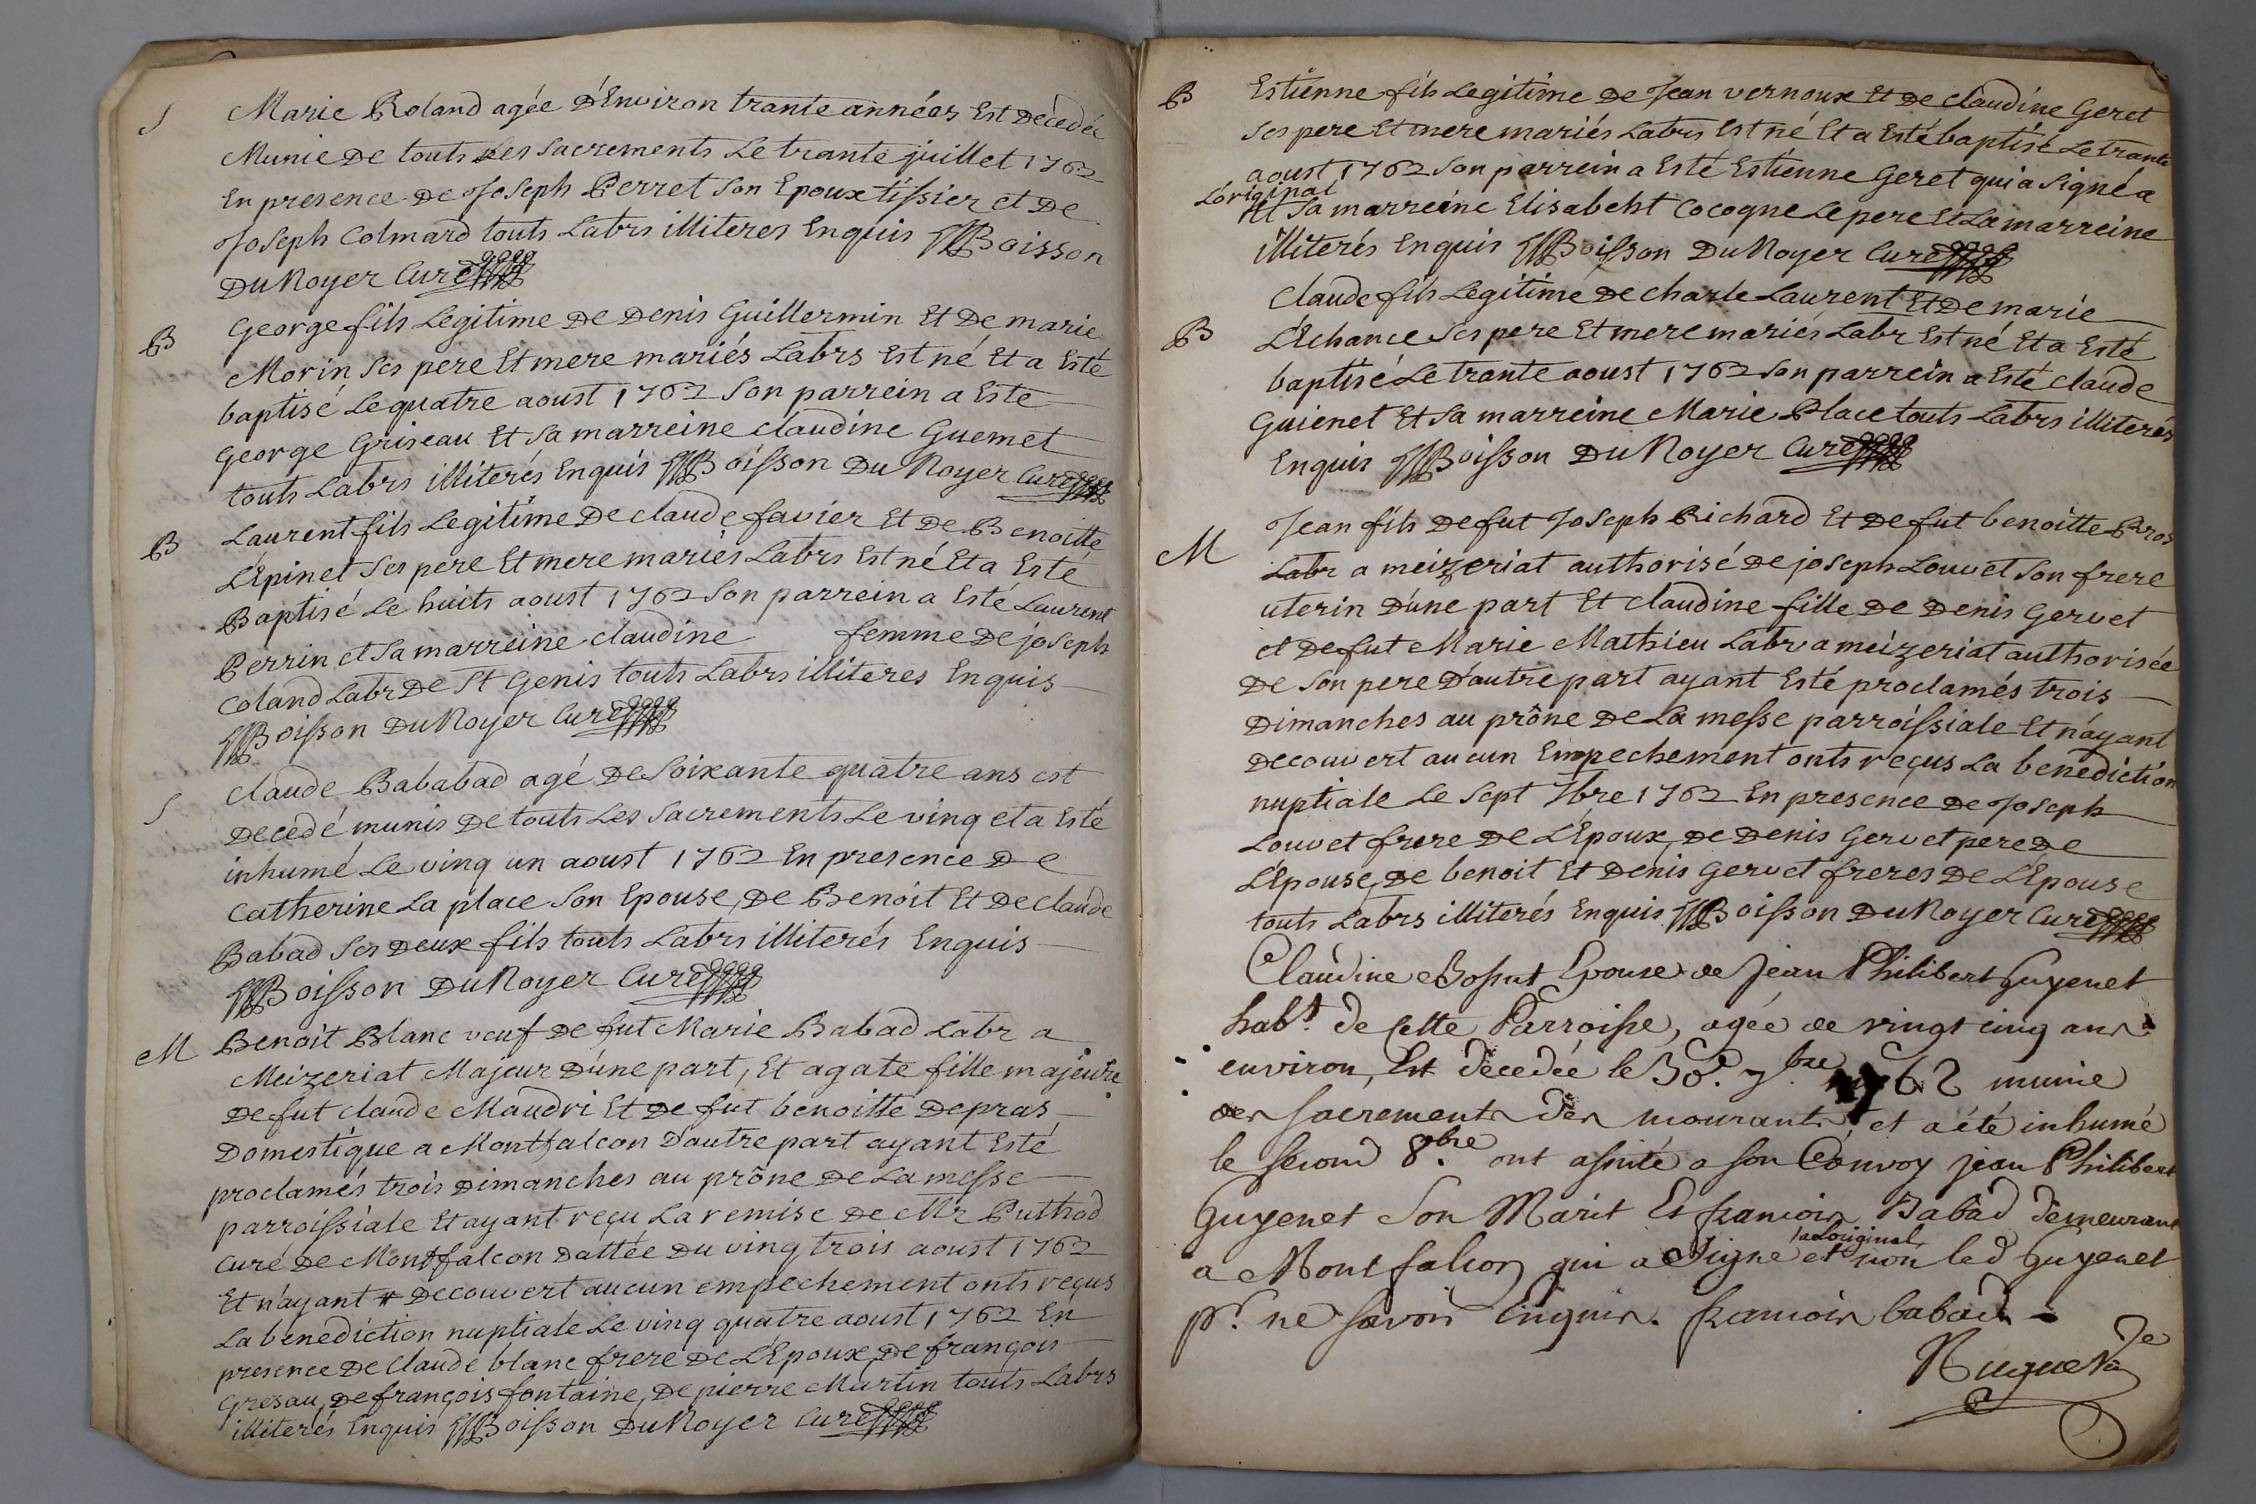 S Marie Roland agée d'Environ trante années Est Decedée
Munie De touts Les Sacrements Le trante juillet 1762
En presence De Joseph Perret Son Epoux tissier et De
Joseph Colmard touts Labrs illiteres Enquis Boisson
Du Noyer Curé
B George fils Legitime De Denis Guillermin Et De marie
Morin Ses pere Et mere mariés Labrs Est né Et a Esté
baptisé Le quatre aoust 1762 Son parrein a Este
George Griseau Et Sa marreine claudine Guemet
touts Labrs illiterés Enquis Boisson Du Noyer Curé
B Laurent fils Legitime De claude favier Et De Benoitte
L'Épinet Ses pere Et mere mariés Labrs Est né Et a Esté
Baptisé Le huits aoust 1762 Son parrein a Esté Laurent
Perrin et Sa marreine claudine femme De joseph
Coland Labr De St Genis touts Labrs illiteres Enquis
Boisson Du Noyer Curé
S claude Bababad agé De Soixante quatre ans est
Decedé munis De touts Les Sacrements Le vinq et a Esté
inhumé Le vinq un aoust 1762 En presence De
Catherine La place Son Epouse, De Benoit Et De claude
Babad Ses Deux fils touts Labrs illiterés Enquis
Boisson Du Noyer Curé
M Benoit Blanc veuf De fut Marie Babad Labr a
Meizeriat Majeur D'une part, Et agate fille majeure
De fut claude Maudri Et De fut benoitte Depras
Domestique a Montfalcon D'autre part ayant Esté
proclamés trois Dimanches au prône De La messe
parroissiale Et ayant reçu La remise De Mr Puthod
Curé De Montfalcon Dattée Du vinq trois aoust 1762
Et n'ayant Decouvert aucun empechement onts reçus
La benediction nuptiale Le vinq quatre aoust 1762 En
presence De Claude blanc frere De L'Epoux, De françois
Gresau, De françois fontaine, De pierre Martin touts Labrs
illiterés Enquis Boisson Du Noyer Curé
B Estienne fils Legitime De Jean vernoux Et De claudine Geret
Ses pere Et mere mariés Labrs Est né Et a Esté baptisé Le trante
aoust 1762 Son parrein a Esté Estienne Geret qui a Signé a
L'original
Et Sa marreine Elisabeht Cocogne Le pere Et La marreine
illiterés Enquis Boisson Du Noyer Curé
Claude fils Legitime De charle Laurent Et De marie
B L'Echance Ses pere Et mere mariés Labr Est né Et a Esté
baptisé Le trante aoust 1762 Son parrein a Esté claude
Guienet Et Sa marreine Marie Place touts Labrs illiterés
Enquis Boisson Du Noyer Curé
Jean fils De fut Joseph Richard Et De fut benoitte Bros
M Labr a meizeriat authorisé De joseph Louvet Son frere
uterin D'une part Et claudine fille De Denis Gervet
et De fut Marie Mathieu Labr a meizeriat authorisée
De Son pere D'autre part ayant Esté proclamés trois
Dimanches au prône De La messe parroissiale Et n'ayant
Decouvert aucun Empechement onts reçus La benediction
nuptiale Le Sept 7bre 1762 En presence De Joseph
Louvet frere De L'Epoux, De Denis Gervet pere De
L'Épouse, De benoit Et Denis Gervet freres De L'Épouse
touts Labrs illiterés Enquis Boisson Du Noyer Curé
Claudine Bossut Epouse de Jean Philibert Guyenet
habt. de Cette Parroisse, agée de vingt cinq ans
environ, Est décedée le 30e. 7bre 1762 munie
des sacrements des mourants, et a été inhumé
le second 8.bre ont assisté a son Convoy jean Philibert
Guyenet Son Marit Et francois Babad demeurant
a Montfalcon qui a Signé a L'original et non led Guyenet
pr. ne savoir Enquis. francois babad